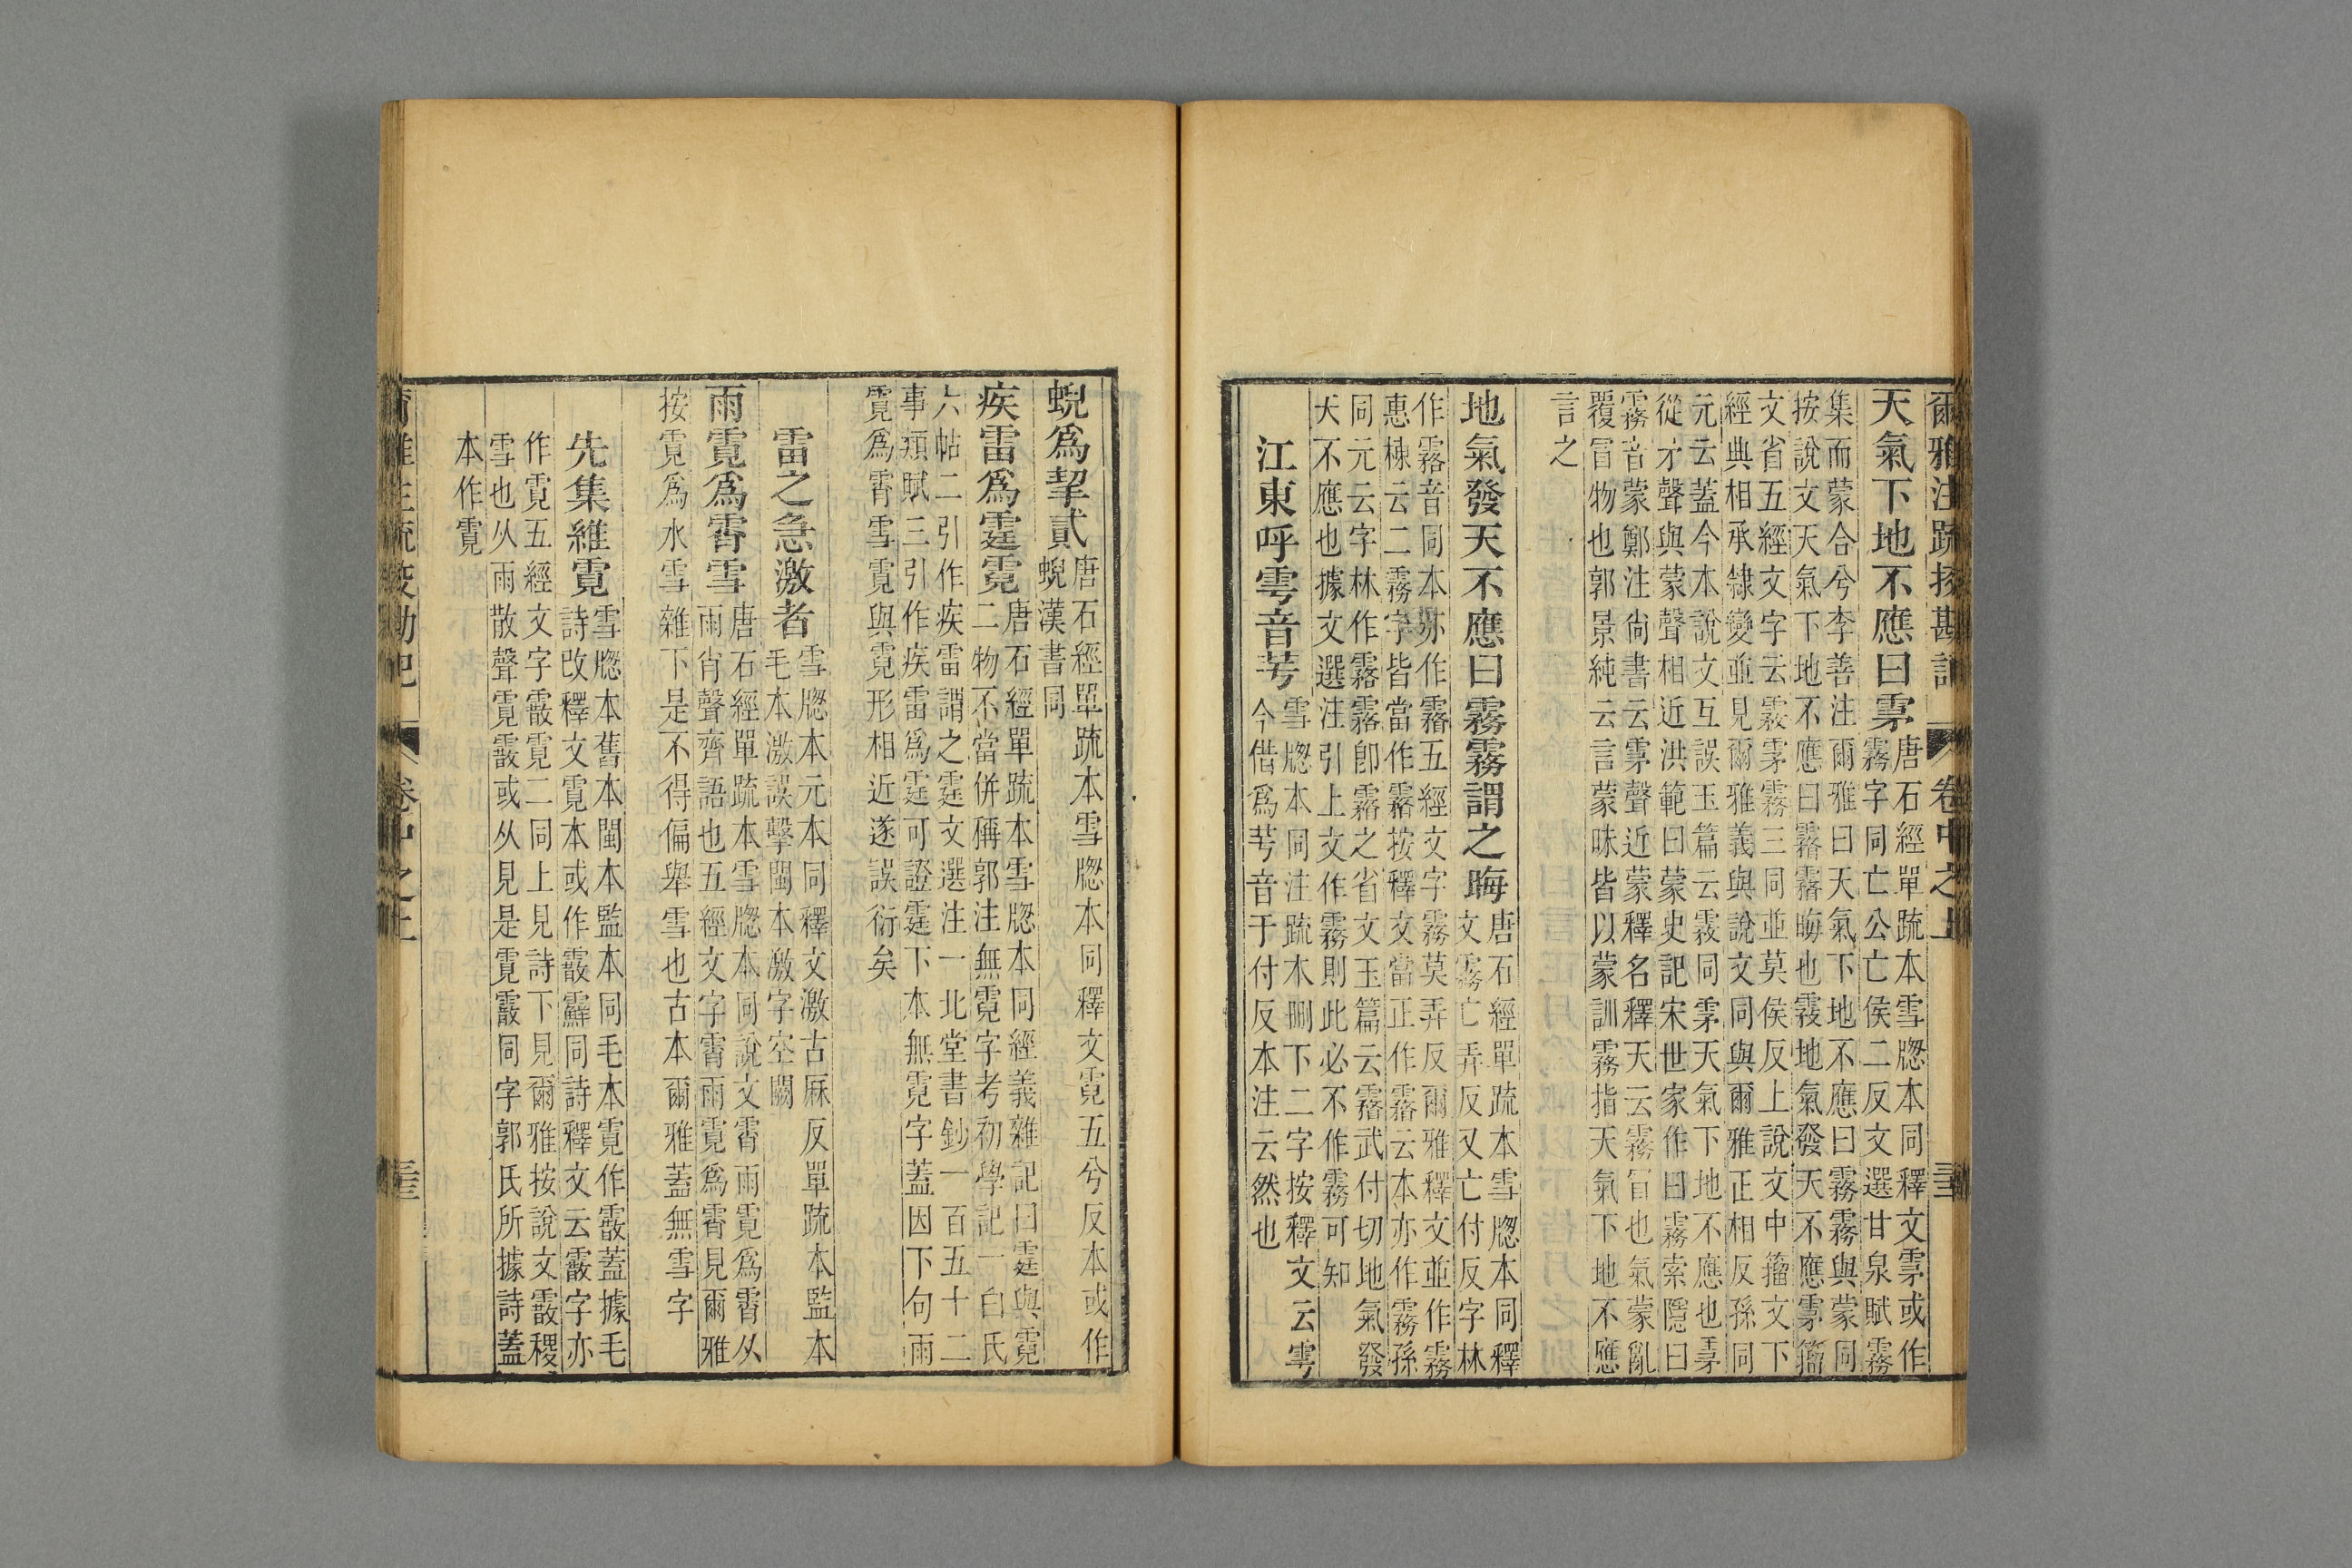 爾雅注疏挍勘記 卷中之上
天氣下地不應曰雺
唐石經單疏本雪牎本同釋文雺或作
霧字同亡公亡侯二反文選甘泉賦霧
集而蒙合兮李善注爾雅曰天氣下地不應曰霧霧與蒙同
按說文天氣下地不應曰霿霿晦也霚地氣發天不應雺籀
文省五經文字云霚雺霧三同並莫侯反上說文中籀文下
經典相承隸變並見爾雅義與說文同與爾雅正相反孫同
元云蓋今本說文互誤玉篇云霚同雺天氣下地不應也雺
從矛聲與蒙聲相近洪範曰蒙史記宋世家作曰霧索隱曰
霧音蒙鄭注尙書云雺聲近蒙釋名釋天云霧冒也氣蒙亂
覆冒物也郭景純云言蒙昧皆以蒙訓霧指天氣下地不應
言之
地氣發天不應曰霧霧謂之晦
唐石經單疏本雪牎本同釋
文霧亡弄反又亡付反字林
作霿音同本亦作霿五經文字霧莫弄反爾雅釋文並作霧
惠棟云二霧字皆當作霿按釋文當正作霿云本亦作霧孫
同元云字林作霿霿卽霿之省文玉篇云霿武付切地氣發
天不應也據文選注引上文作霧則此必不作霧可知
江東呼雩音芌
雪牎本同注疏本刪下二字按釋文云雩
今借爲芌音于付反本注云然也
蜺爲挈貳
唐石經單疏本雪牎本同釋文霓五兮反本或作
蜺漢書同
疾雷爲霆霓
唐石經單疏本雪牎本同經義雜記曰霆與霓
二物不當併稱郭注無霓字考初學記一白氏
六帖二引作疾雷謂之霆文選注一北堂書鈔一百五十二
事類賦三引作疾雷爲霆可證霆下本無霓字蓋因下句雨
霓爲霄雪霓與霓形相近遂誤衍矣
雷之急激者
雪牎本元本同釋文激古厤反單疏本監本
毛本激誤擊閩本激字空闕
雨霓爲霄雪
唐石經單疏本雪牎本同說文霄雨霓爲霄从
雨肖聲齊語也五經文字霄雨霓爲霄見爾雅
按霓爲水雪雜下是不得偏舉雪也古本爾雅蓋無雪字
先集維霓
雪牎本舊本閩本監本同毛本霓作霰蓋據毛
詩改釋文霓本或作霰䨘同詩釋文云霰字亦
作霓五經文字霰霓二同上見詩下見爾雅按說文霰稷
雪也从雨散聲霓霰或从見是霓霰同字郭氏所據詩蓋
本作霓
爾雅注疏挍勘記 卷中之上